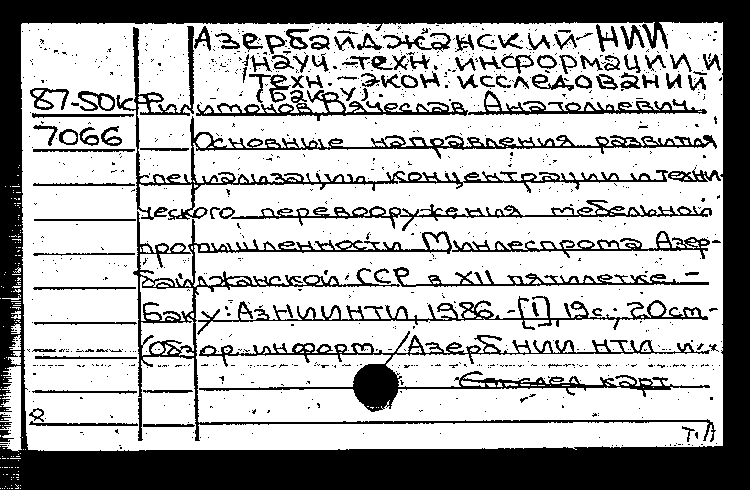 Азербайджанский НИИ
науч.-техн. информации и
техн.-экон. исследований
(Баку).
87-50к Филимонов, Вячеслав Анатольевич.
7066 Основные направления развития
специализации, концентрации и техни-
ческого перевооружения мебельной
промышленности Минлеспрома Азер-
байджанской ССР в XII пятилетке. -
Баку: АзНИИНТИ, 1986. - [1], 19 с.; 20 см -
(Обзор. информ. / Азерб. НИИ НТИ и...
карт
8
Т.Л